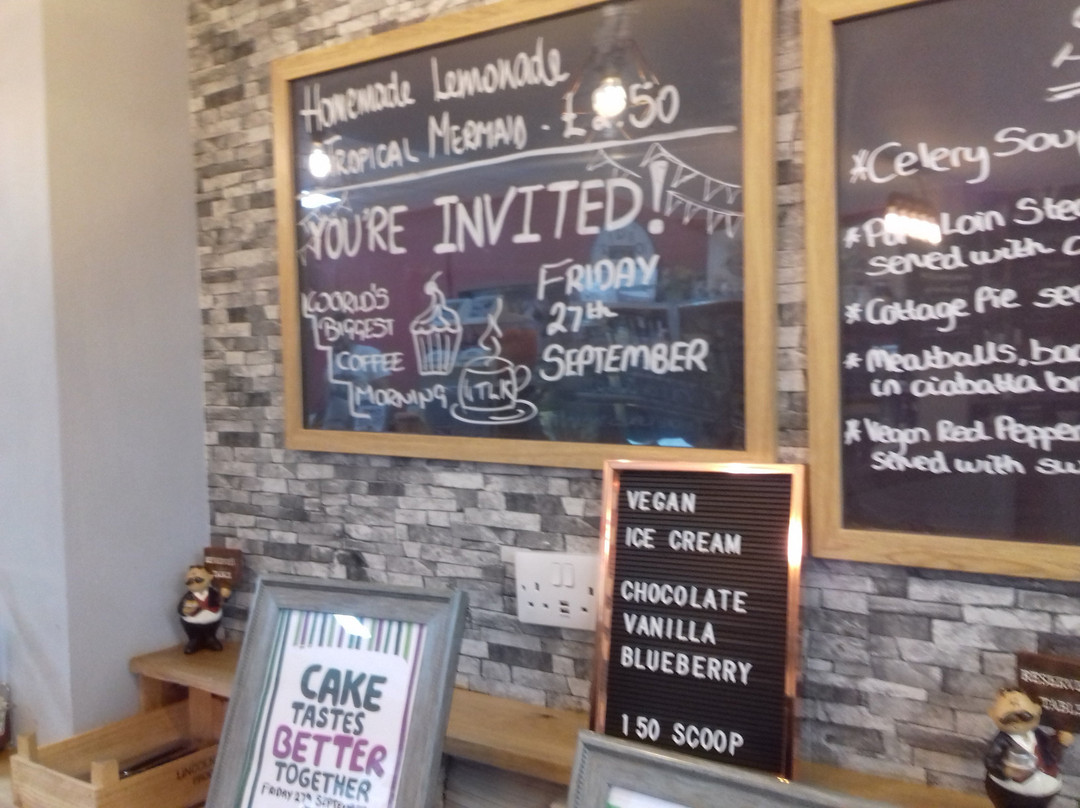 Homemade Lemonade
TROPICAL MERMAID - £ .50
YOU'RE INVITED!
WORLD'S
BIGGEST
COFFEE
MORNING
FRIDAY
27th
SEPTEMBER
*Celery Soup
Loin
served with
*Cottage Pie
*Meatballs,
in ciabatta
*Vegan Red Pepper
served with
VEGAN
ICE CREAM
CHOCOLATE
VANILLA
BLUEBERRY
1 50 SCOOP
CAKE
TASTES
BETTER
TOGETHER
FRIDAY 27th SEPTEMBER